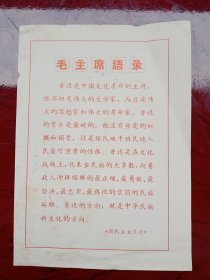 毛主席語录
鲁迅是中国文化革命的主将，
他不但是伟大的文学家，而且是伟
大的思想家和伟大的革命家。鲁迅
的骨头是最硬的，他没有丝毫的奴
颜和媚骨，这是殖民地半殖民地人
民最可宝贵的性格。鲁迅是在文化
战线上，代表全民族的大多数，向着
敌人冲锋陷阵的最正确、最勇敢、最
坚决、最忠实、最热忱的空前的民族
英雄。鲁迅的方向，就是中华民族
新文化的方向。
《新民主主义论》